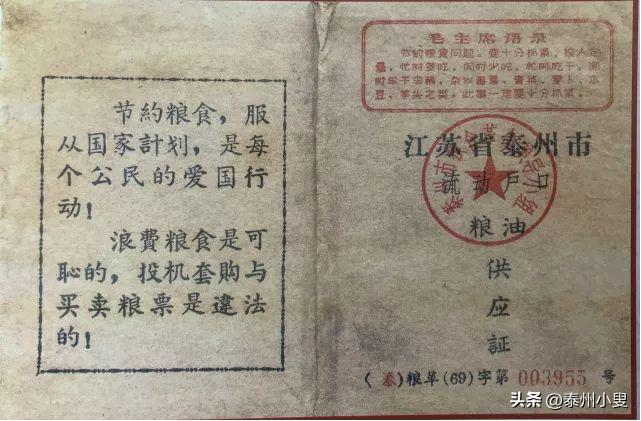 节約粮食，服
从国家計划，是每
个公民的爱国行
动！
浪費粮食是可
恥的，投机套購与
买卖粮票是違法
的！
毛主席语录
节约粮食问题。要十分抓紧，按人定
量，忙时多吃，闲时少吃，忙时吃干，闲
时半干半稀，杂以番薯、青菜、萝卜、瓜
豆、芋头之类。此事一定要十分抓紧。
江苏省泰州市
流动户口
粮油
供
应
証
(泰)粮革(69)字第 003955 号
泰州市
小组
头条 @泰州小叟